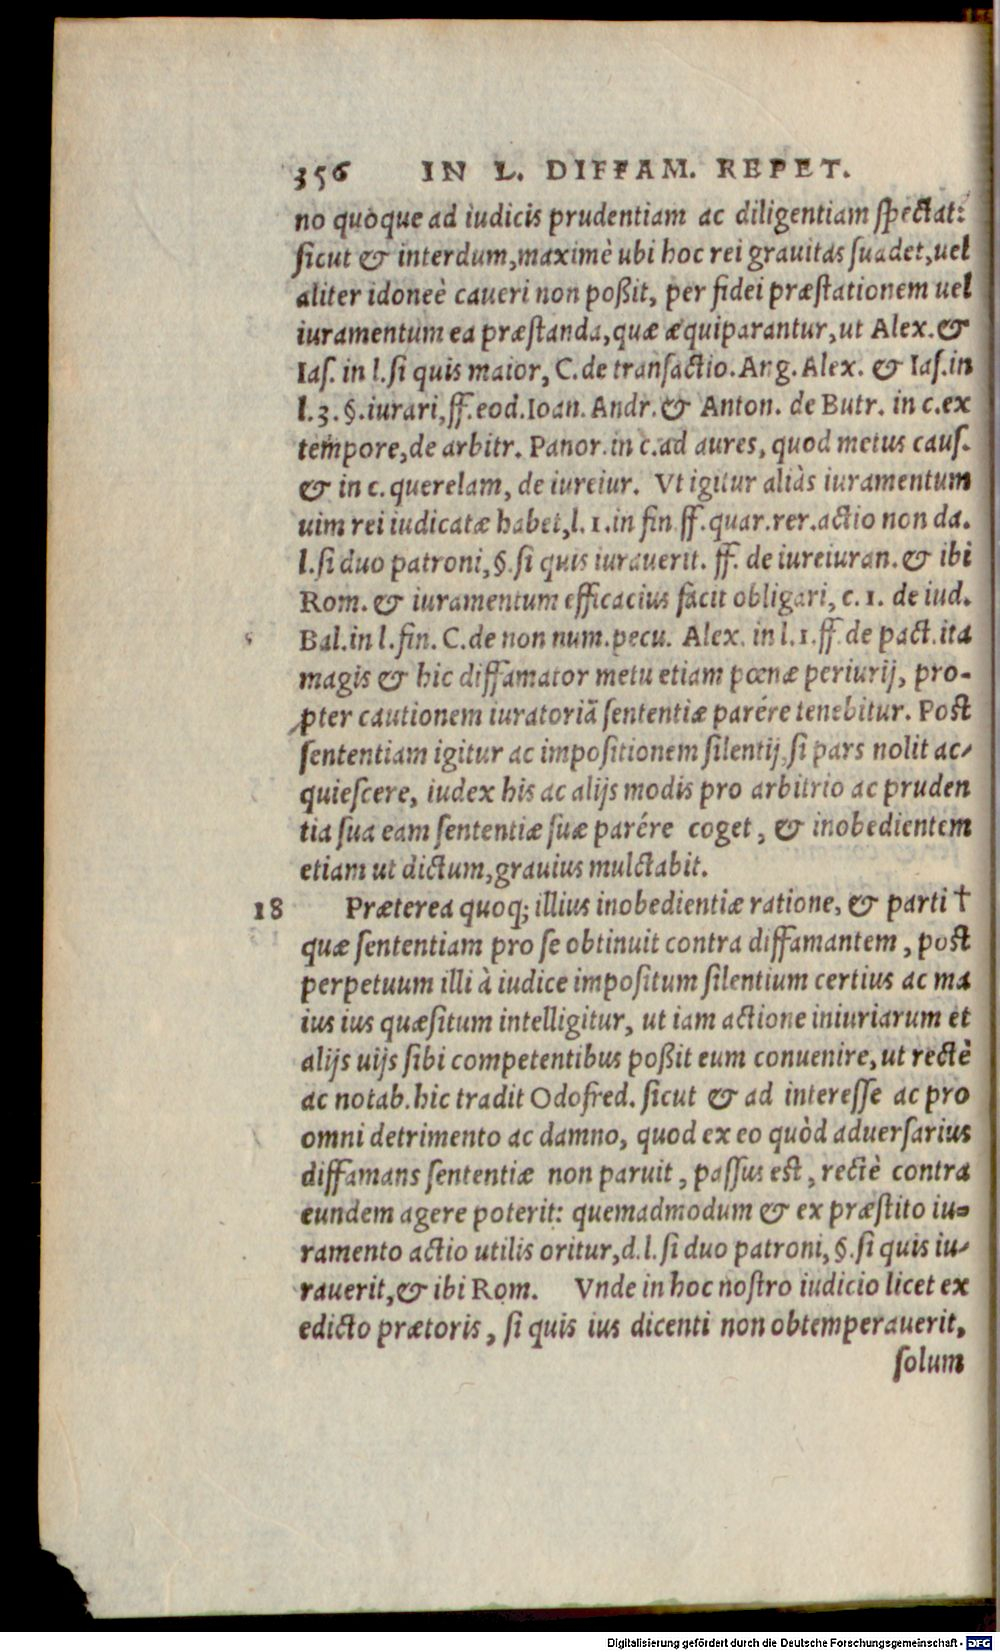 356 IN L. DIFFAM. REPET.
no quoque ad iudicis prudentiam ac diligentiam ſpectat:
ſicut & interdum, maximè ubi hoc rei grauitas ſuadet, uel
aliter idoneè caueri non poßit, per fidei præſtationem uel
iuramentum ea præſtanda, quæ æquiparantur, ut Alex. &
Iaſ. in l. ſi quis maior, C. de tranſactio. Ang. Alex. & Iaſ. in
l. 3. §. iurari, ff. eod. Ioan. Andr. & Anton. de Butr. in c. ex
tempore, de arbitr. Panor. in c. ad aures, quod metus cauſ.
& in c. querelam, de iureiur. Vt igitur aliàs iuramentum
uim rei iudicatæ habet, l. 1. in fin. ff. quar. rer. actio non da.
l. ſi duo patroni, §. ſi quis iurauerit. ff. de iureiuran. & ibi
Rom. & iuramentum efficacius facit obligari, c. 1. de iud.
Bal. in l. fin. C. de non num. pecu. Alex. in l. 1. ff. de pact. ita
magis & hic diffamator metu etiam pœnæ periurij, pro-
pter cautionem iuratoriā ſententiæ parére tenebitur. Poſt
ſententiam igitur ac impoſitionem ſilentij, ſi pars nolit ac-
quieſcere, iudex his ac alijs modis pro arbitrio ac pruden
tia ſua eam ſententiæ ſuæ parére coget, & inobedientem
etiam ut dictum, grauius mulctabit.
18 Præterea quoq; illius inobedientiæ ratione, & parti †
quæ ſententiam pro ſe obtinuit contra diffamantem, poſt
perpetuum illi à iudice impoſitum ſilentium certius ac ma
ius ius quæſitum intelligitur, ut iam actione iniuriarum et
alijs uijs ſibi competentibus poßit eum conuenire, ut rectè
ac notab. hic tradit Odofred. ſicut & ad intereſſe ac pro
omni detrimento ac damno, quod ex eo quòd aduerſarius
diffamans ſententiæ non paruit, paſſus eſt, rectè contra
eundem agere poterit: quemadmodum & ex præſtito iu-
ramento actio utilis oritur, d. l. ſi duo patroni, §. ſi quis iu-
rauerit, & ibi Rom. Vnde in hoc noſtro iudicio licet ex
edicto prætoris, ſi quis ius dicenti non obtemperauerit,
ſolum
Digitalisierung gefördert durch die Deutsche Forschungsgemeinschaft - DFG